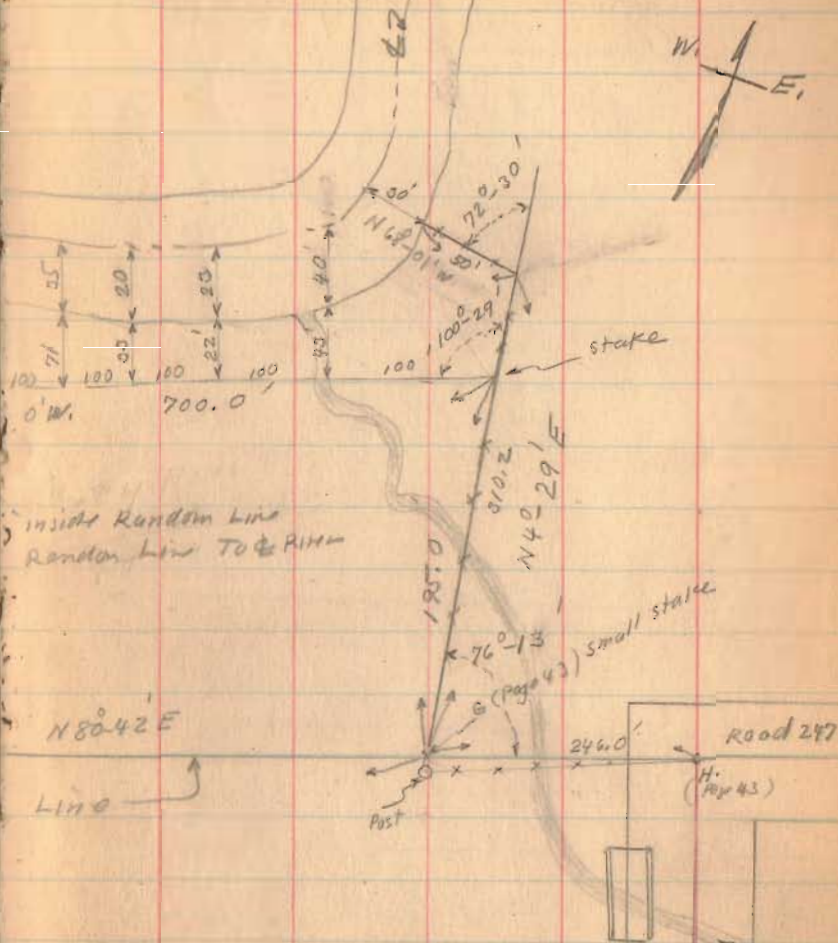 ℄
W.
E.
72°-30'
30'
N 68°-01' W
50'
35
20
23
40'
71'
22'
43
100°-29'
stake
100 100 100 100 100
0' W.
700.0'
310.2
N 4°-29' E
inside Random Line
Random Line To ℄ River
195.0
76°-13'
G (Page 43) small stake
N 80°-42' E
246.0'
Road 247
H.
(Page 43)
Line
Post